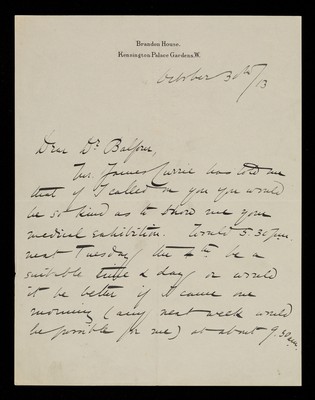 Brandon House.
Kensington Palace Gardens. W.
October 30th/13
Dear Dr. Balfour,
Mr. James Currie has told me
that if I called on you you would
be so kind as to show me your
medical exhibition. Would 5.30 p.m.
next Tuesday the 4th. be a
suitable time & day or would
it be better if I came one
morning (any next week would
be possible for me) at about 9.30 a.m.